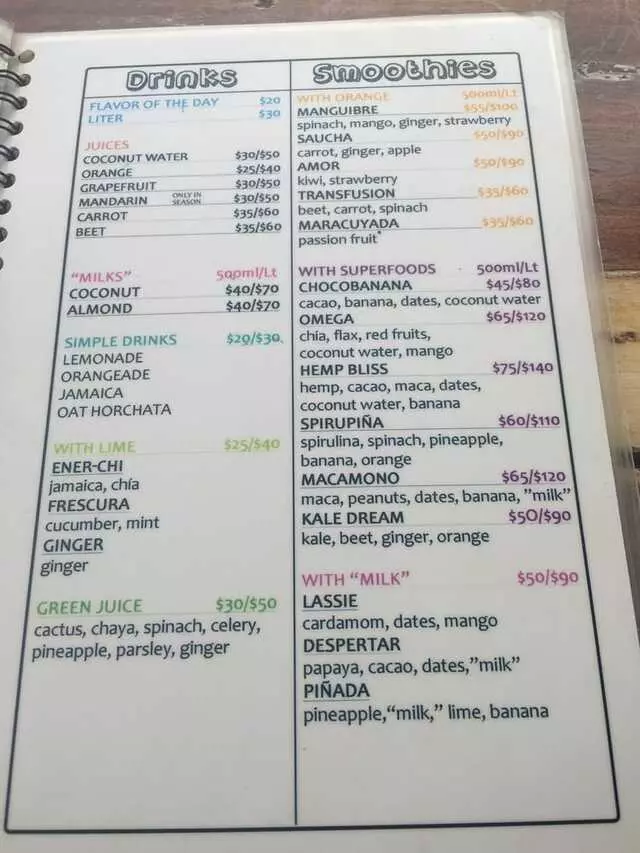 Drinks
FLAVOR OF THE DAY $20
LITER $30
JUICES
COCONUT WATER $30/$50
ORANGE $25/$40
GRAPEFRUIT $30/$50
MANDARIN ONLY IN SEASON $30/$50
CARROT $35/$60
BEET $35/$60
"MILKS" 500ml/Lt
COCONUT $40/$70
ALMOND $40/$70
SIMPLE DRINKS $20/$30
LEMONADE
ORANGEADE
JAMAICA
OAT HORCHATA
WITH LIME $25/$40
ENER-CHI
jamaica, chía
FRESCURA
cucumber, mint
GINGER
ginger
GREEN JUICE $30/$50
cactus, chaya, spinach, celery,
pineapple, parsley, ginger
Smoothies
WITH ORANGE 500ml/Lt
MANGUIBRE $55/$100
spinach, mango, ginger, strawberry
SAUCHA $50/$90
carrot, ginger, apple
AMOR $50/$90
kiwi, strawberry
TRANSFUSION $35/$60
beet, carrot, spinach
MARACUYADA $35/$60
passion fruit
WITH SUPERFOODS 500ml/Lt
CHOCOBANANA $45/$80
cacao, banana, dates, coconut water
OMEGA $65/$120
chia, flax, red fruits,
coconut water, mango
HEMP BLISS $75/$140
hemp, cacao, maca, dates,
coconut water, banana
SPIRUPIÑA $60/$110
spirulina, spinach, pineapple,
banana, orange
MACAMONO $65/$120
maca, peanuts, dates, banana, "milk"
KALE DREAM $50/$90
kale, beet, ginger, orange
WITH "MILK" $50/$90
LASSIE
cardamom, dates, mango
DESPERTAR
papaya, cacao, dates,"milk"
PIÑADA
pineapple,"milk," lime, banana